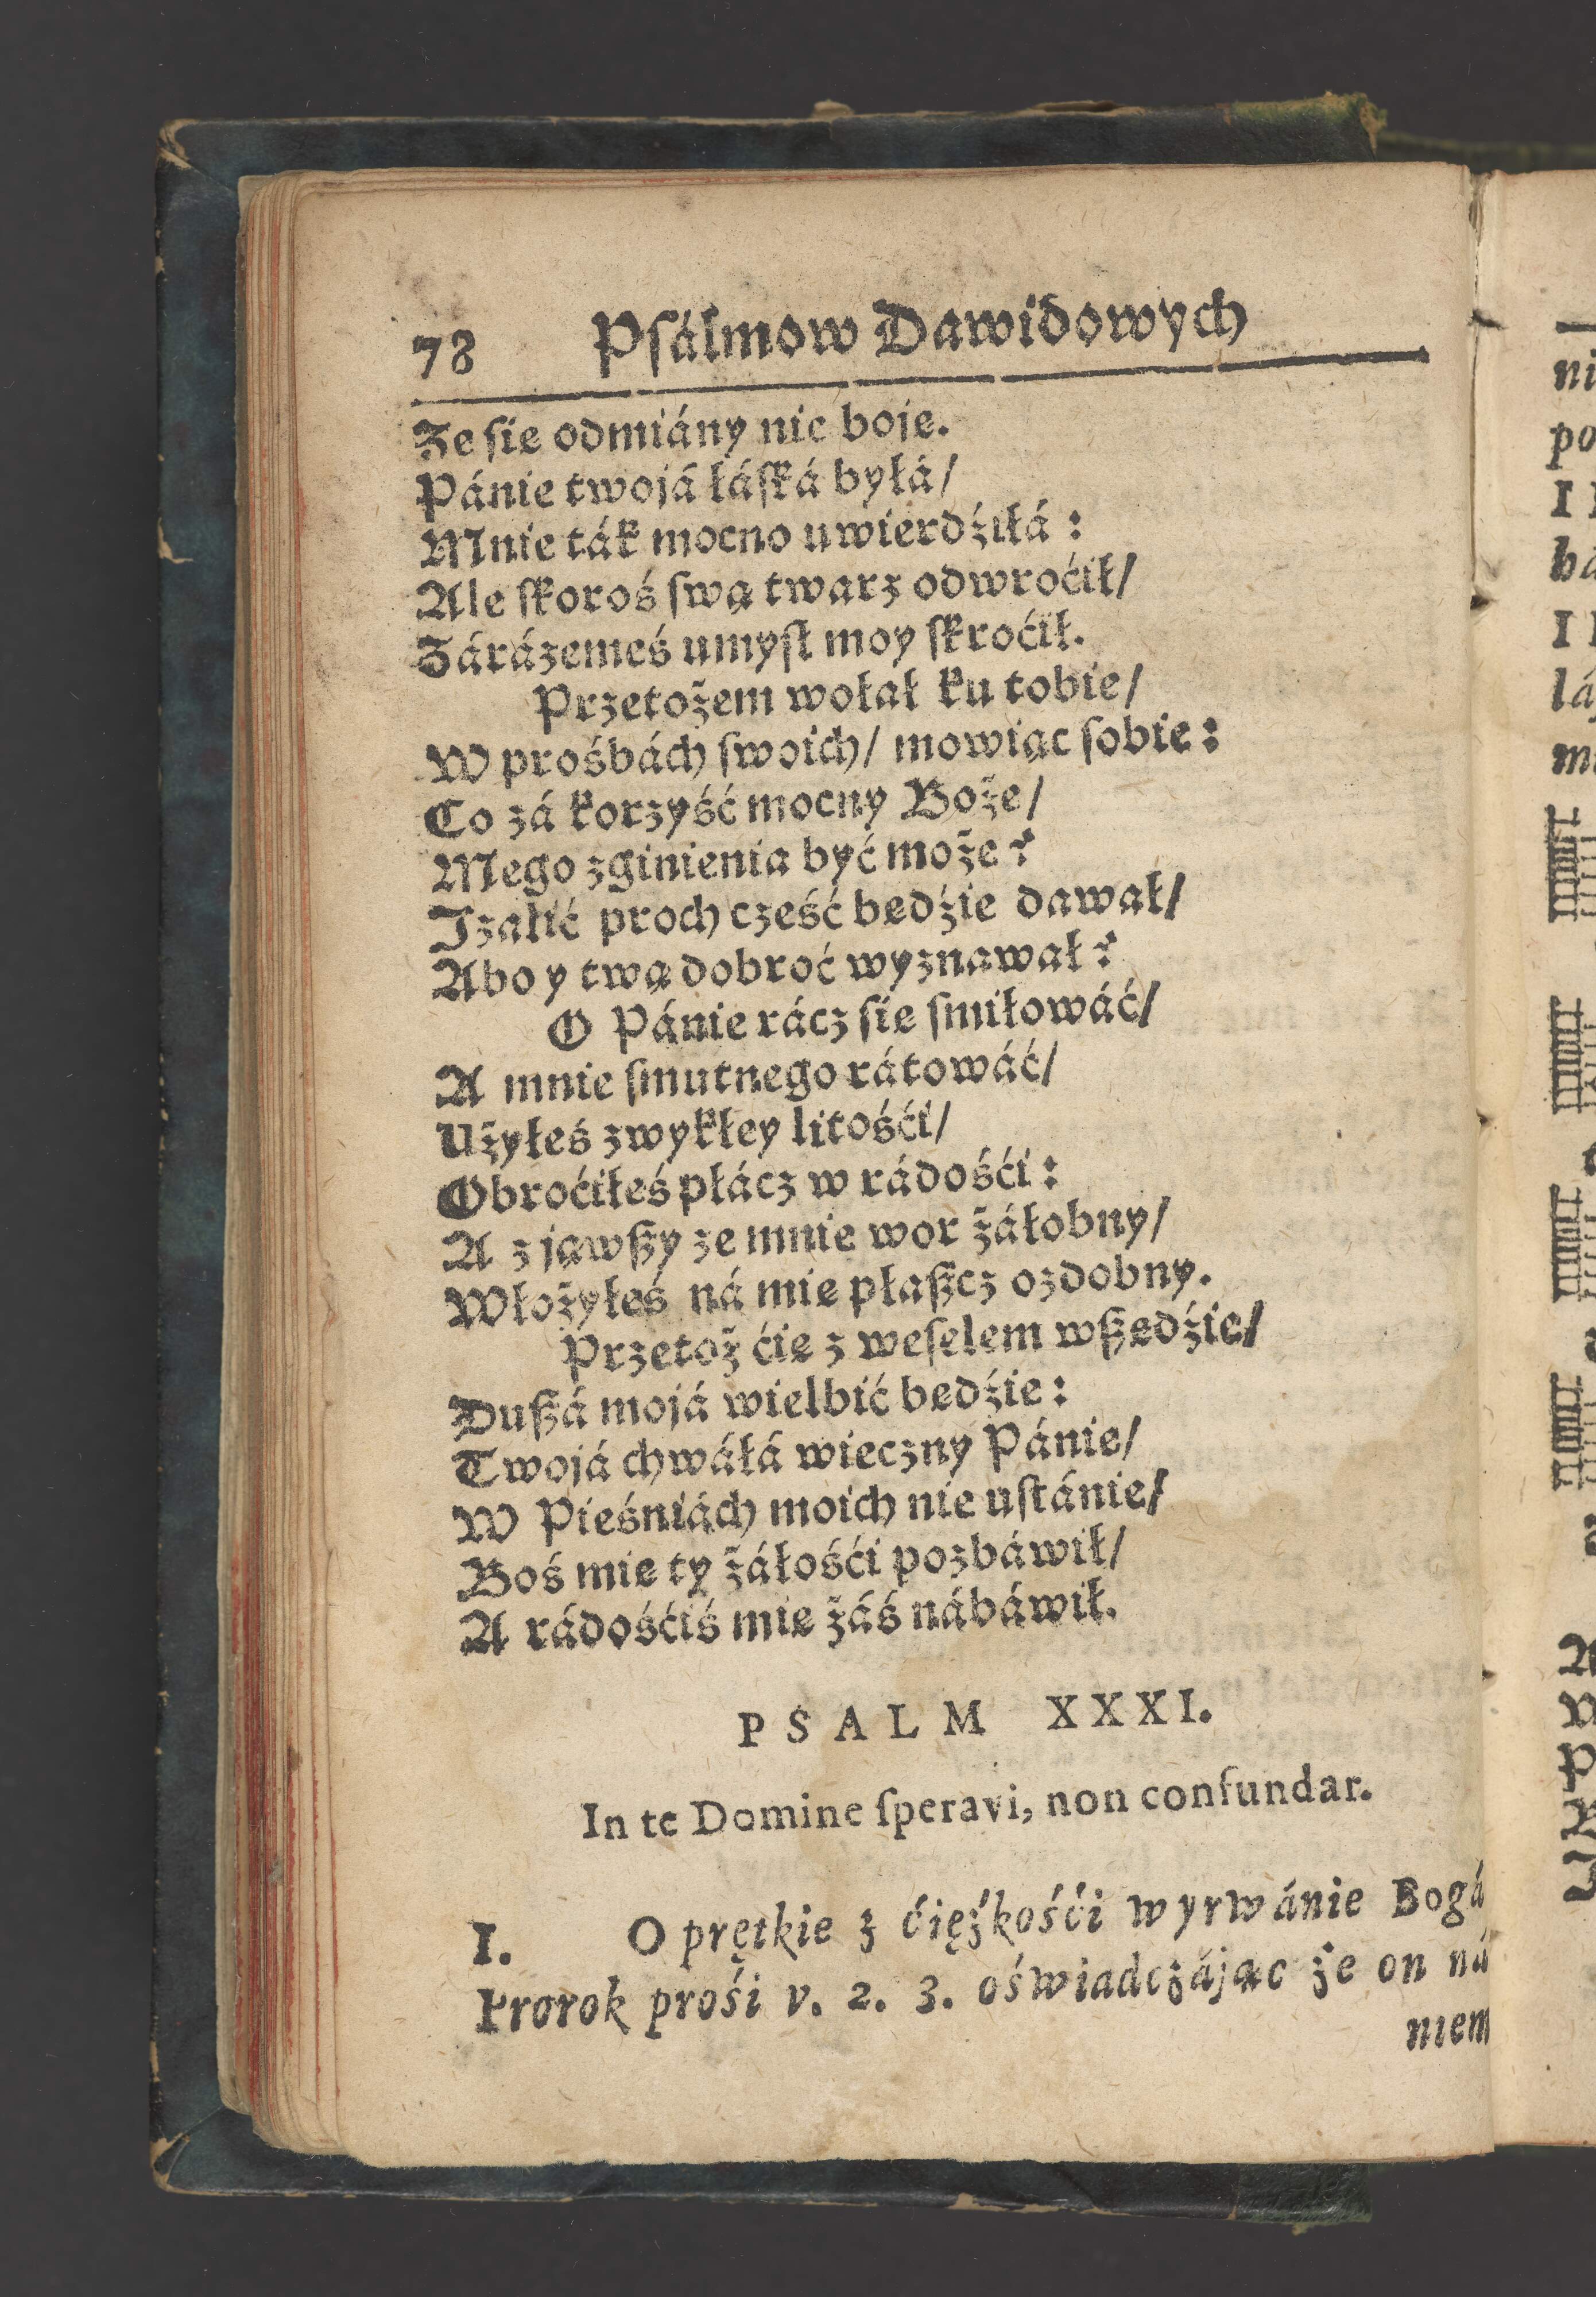 78 Psálmow Dawidowych
Że ſię odmiány nic boję.
Pánie twojá łáſká byłá/
Mnie ták mocno utwierdźiłá:
Ale ſkoroś ſwą twarz odwroćił/
Zárázemeś umyſł moy ſkroćił.
Przetożem wołał ku tobie/
W prośbách ſwoich/ mowiąc ſobie:
Co zá korzyść mocny Boże/
Mego zginienia być może?
Izalić proch cześć będźie dawał/
Abo y twą dobroć wyznawał?
O Pánie rácz ſię ſmiłowáć/
A mnie ſmutnego rátowáć/
Użyłeś zwykłey litośći/
Obroćiłeś płácz w rádośći:
A zjąwßy ze mnie wor żáłobny/
Włożyłeś ná mię płaßcz ozdobny.
Przetoż ćię z weſelem wßędźie/
Dußá mojá wielbić będźie:
Twojá chwáłá wieczny Pánie/
W Pieśniách moich nie uſtánie/
Boś mię ty żáłośći pozbáwił/
A rádośćiś mię záś nábáwił.
PSALM XXXI.
In te Domine ſperavi, non confundar.
I. O prętkie z ćiężkośći wyrwánie Bogá
Prorok prośi v. 2. 3. oświadczájąc że on ná
niem